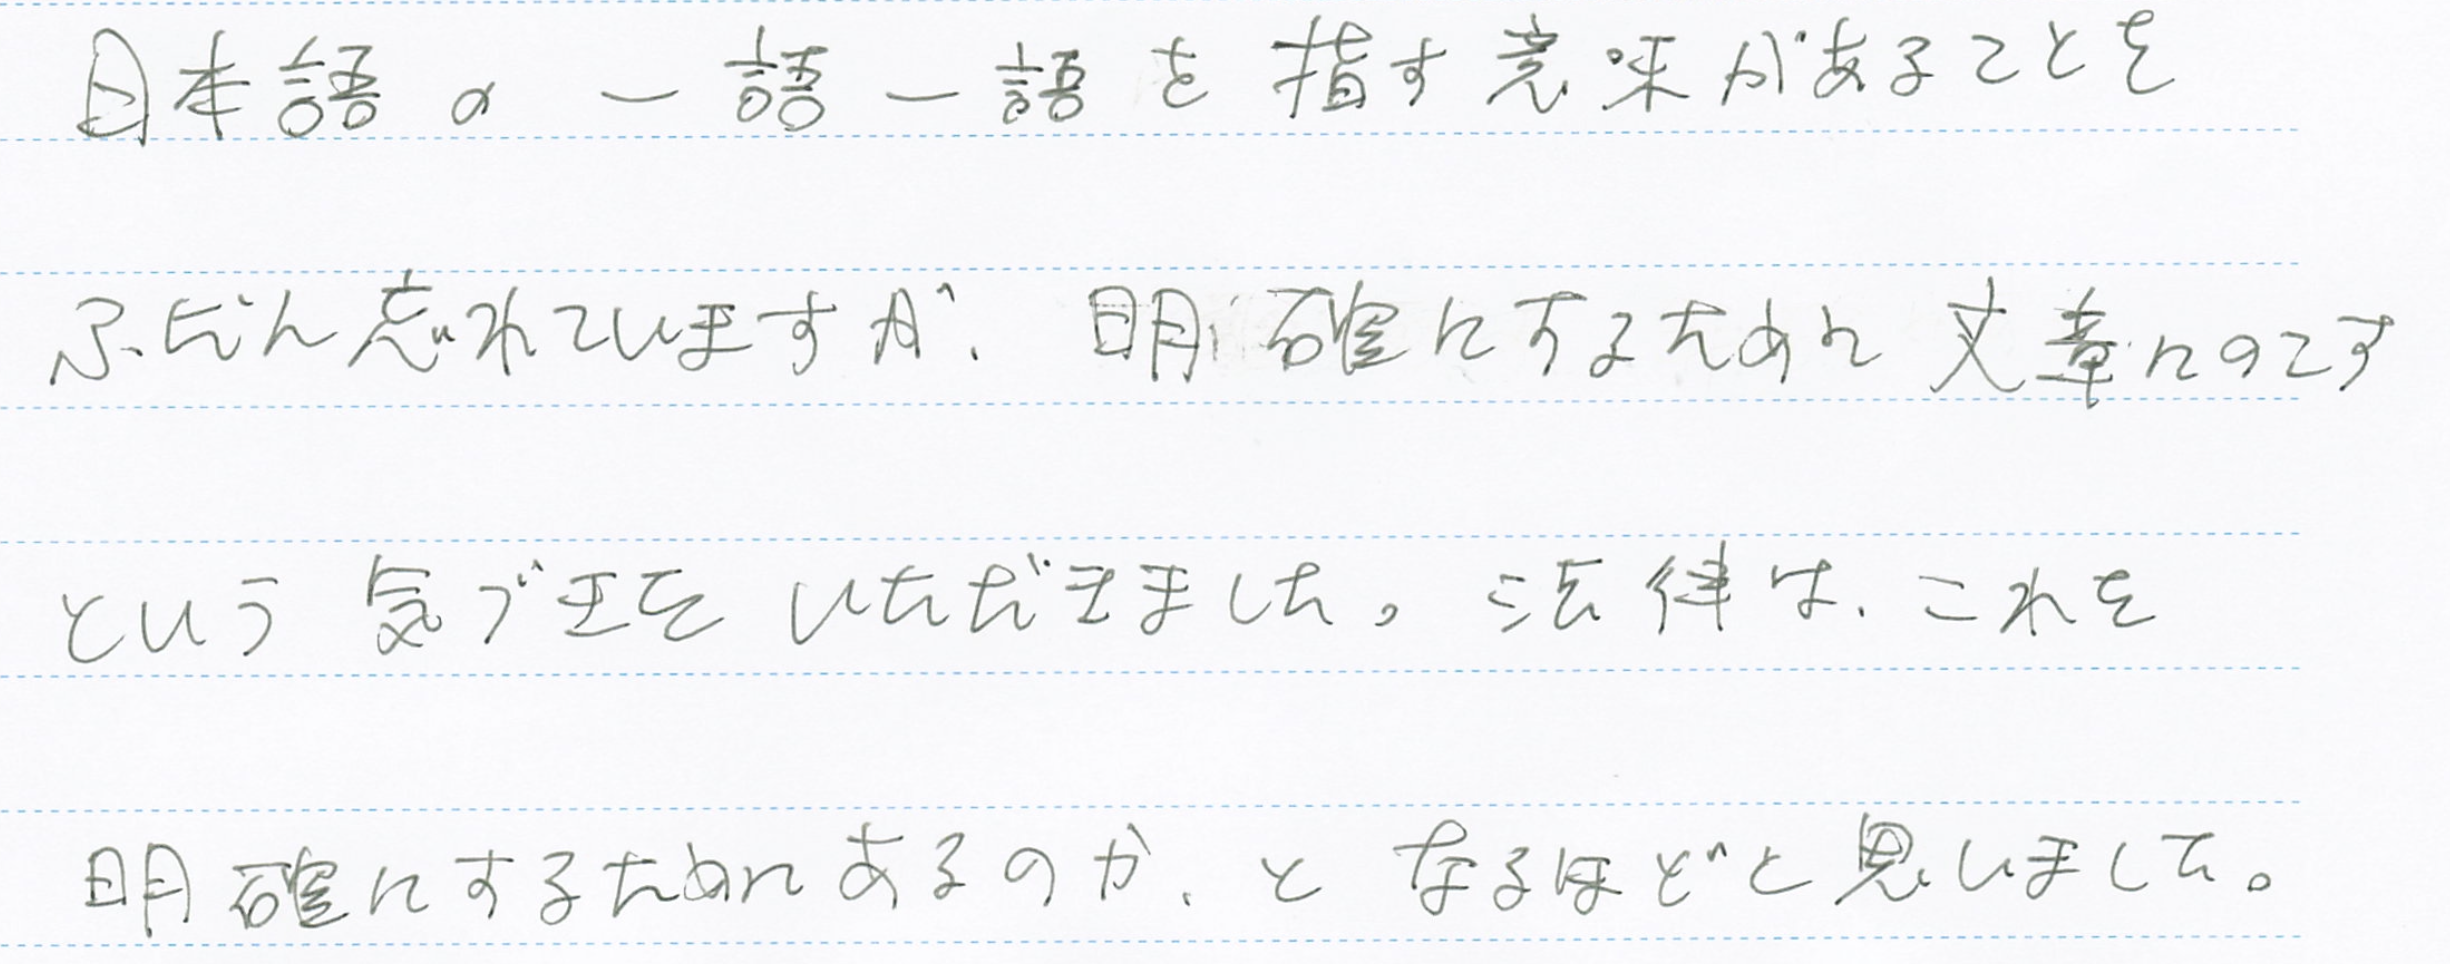 日本語の一語一語を指す意味があることを
ふだん忘れていますが、明確にするために文章にのこす
という気づきをいただきました。法律は、これを
明確にするためにあるのか、となるほどと思いました。